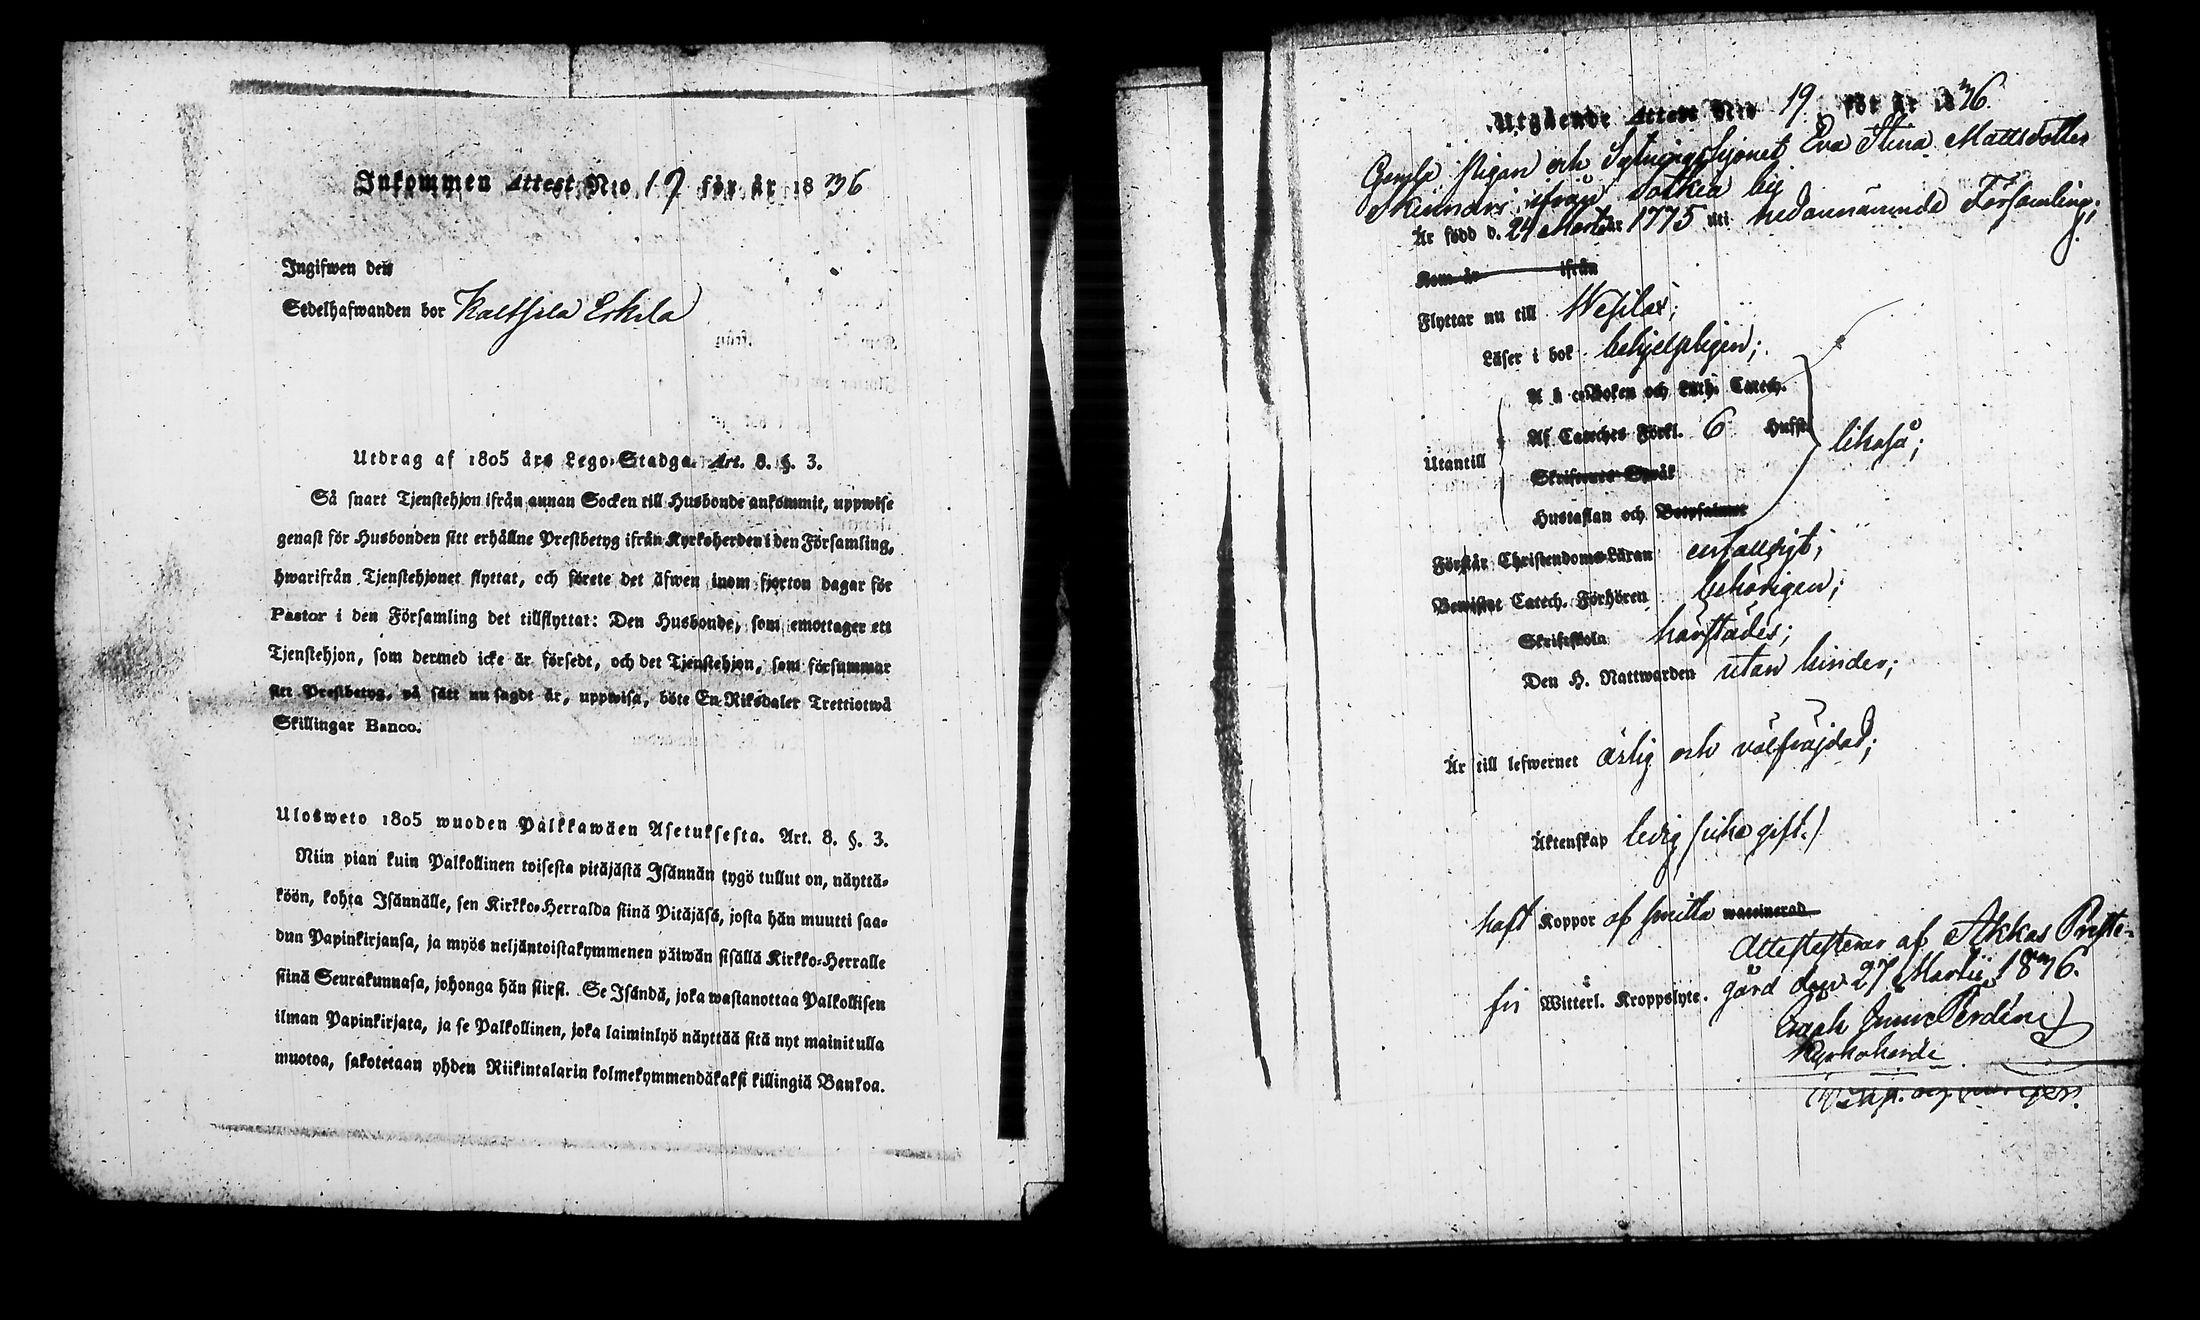 Inkommen Attest N:o 19 för år 1836
Ingifwen den
Sedelhafwanden bor Kaltsila Eskila
Utdrag af 1805 års Lego-Stadga. Art. 8. §. 3.
Så snart Tjenstehjon ifrån annan Socken till Husbonde ankommit, uppwise
genast för Husbonden sitt erhållne Prestbetyg ifrån Kyrkoherden i den Församling,
hwarifrån Tjenstehjonet flyttat, och förete det äfwen inom fjorton dagar för
Pastor i den Församling det tillflyttat: Den Husbonde, som emottager ett
Tjenstehjon, som dermed icke är försedt, och det Tjenstehjon, som försummar
sitt Prestbetyg, på sätt nu sagdt är, uppwisa, böte En Riksdaler Trettiotwå
Skillingar Banco.
Ulosweto 1805 wuoden Palkkawäen Asetuksesta. Art. 8. §. 3.
Niin pian kuin Palkollinen toisesta pitäjästä Isännän tygö tullut on, näyttä-
köön, kohta Isännälle, sen Kirkko-Herralda siinä Pitäjäsä, josta hän muutti saa-
dun Papinkirjansa, ja myös neljäntoistakymmenen päiwän sisällä Kirkko-Herralle
siinä Seurakunnasa, johonga hän siirsi. Se Isändä, joka wastanottaa Palkollisen
ilman Papinkirjata, ja se Palkollinen, joka laiminlyö näyttää sitä nyt mainitulla
muotoa, sakotetaan yhden Riikintalarin kolmekymmendäkaksi killingiä Bankoa.
Utgående Attest N:o 19 för år 1836.
Gamla Pigan och Sytningshjonet Eva Stina Mattsdotter
ifrån by
Är född d. 24 Martii år 1775 uti nedannämnde Församling;
Kom år ifrån
Flyttar nu till Wesilax;
Läser i bok behjelpligen;
A b c-Boken och Luth. Catech.
Af Cateches Förkl. 6 Hufst.
Utantill likaså;
Skrifternes Språk
Hustaflan och Botpsalmer
Förstår Christendoms-Läran enfalldigt;
Bewistat Catech. Förhören behörigen;
Skriftskola härstädes;
Den H. Nattwarden utan hinder;
Är till lefwernet ärlig och välfräjdad;
Äktenskap ledig (icke gift.)
haft Koppor af smitta waccinerad
Attesteras af Akkas Preste-
fri Witterl. Kroppslyte. gård den 27 Martii 1836.
Kyrkoherde